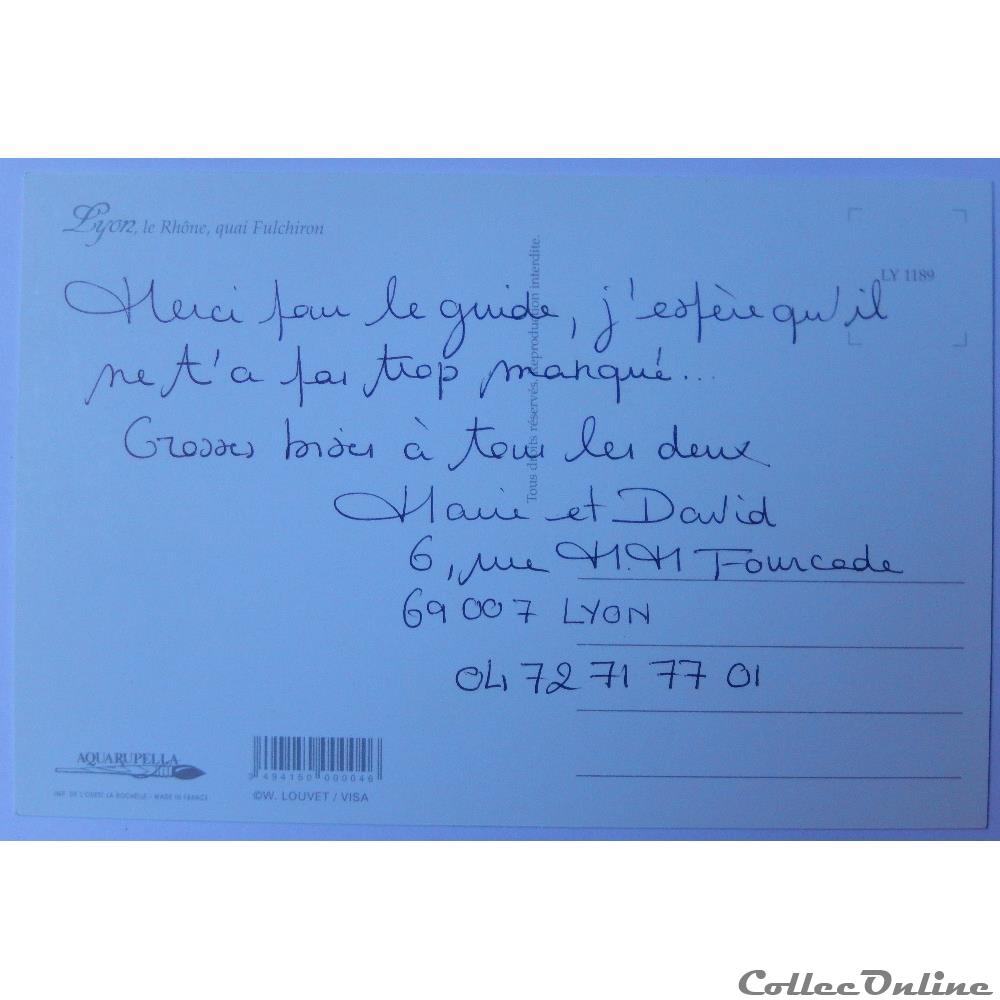 Lyon, le Rhône, quai Fulchiron
LY 1189
Merci pour le guide, j'espère qu'il
ne t'a pas trop manqué...
Grosses bises à tous les deux
Marie et David
6, rue M.M Fourcade
69007 LYON
04 72 71 77 01
Tous droits réservés. Reproduction interdite.
AQUARUPELLA
IMP. DE L'OUEST LA ROCHELLE - MADE IN FRANCE
3 494150 000046
©W. LOUVET / VISA
CollecOnline